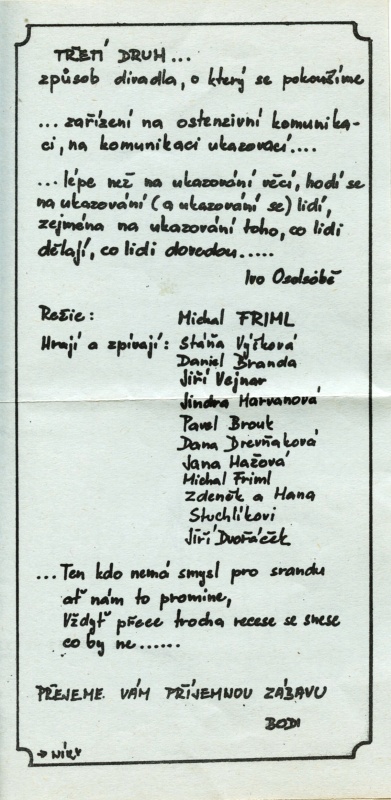 TŘETÍ DRUH...
způsob divadla, o který se pokoušíme
...zařízení na ostenzivní komunika-
ci, na komunikaci ukazovací....
...lépe než na ukazování věcí, hodí se
na ukazování (a ukazování se) lidí,
zejména na ukazování toho, co lidi
dělají, co lidi dovedou.....
Ivo Osolsobě
Režie: Michal FRIML
Hrají a zpívají: Stáňa Výšková
Daniel Branda
Jiří Vejnar
Jindra Harvanová
Pavel Brouk
Dana Drevňaková
Jana Hažová
Michal Friml
Zdeněk a Hana
Stuchlíkovi
Jiří Dvořáček
...Ten kdo nemá smysl pro srandu
ať nám to promine,
Vždyť přece trocha recese se snese
co by ne......
PŘEJEME VÁM PŘÍJEMNOU ZÁBAVU
BODI